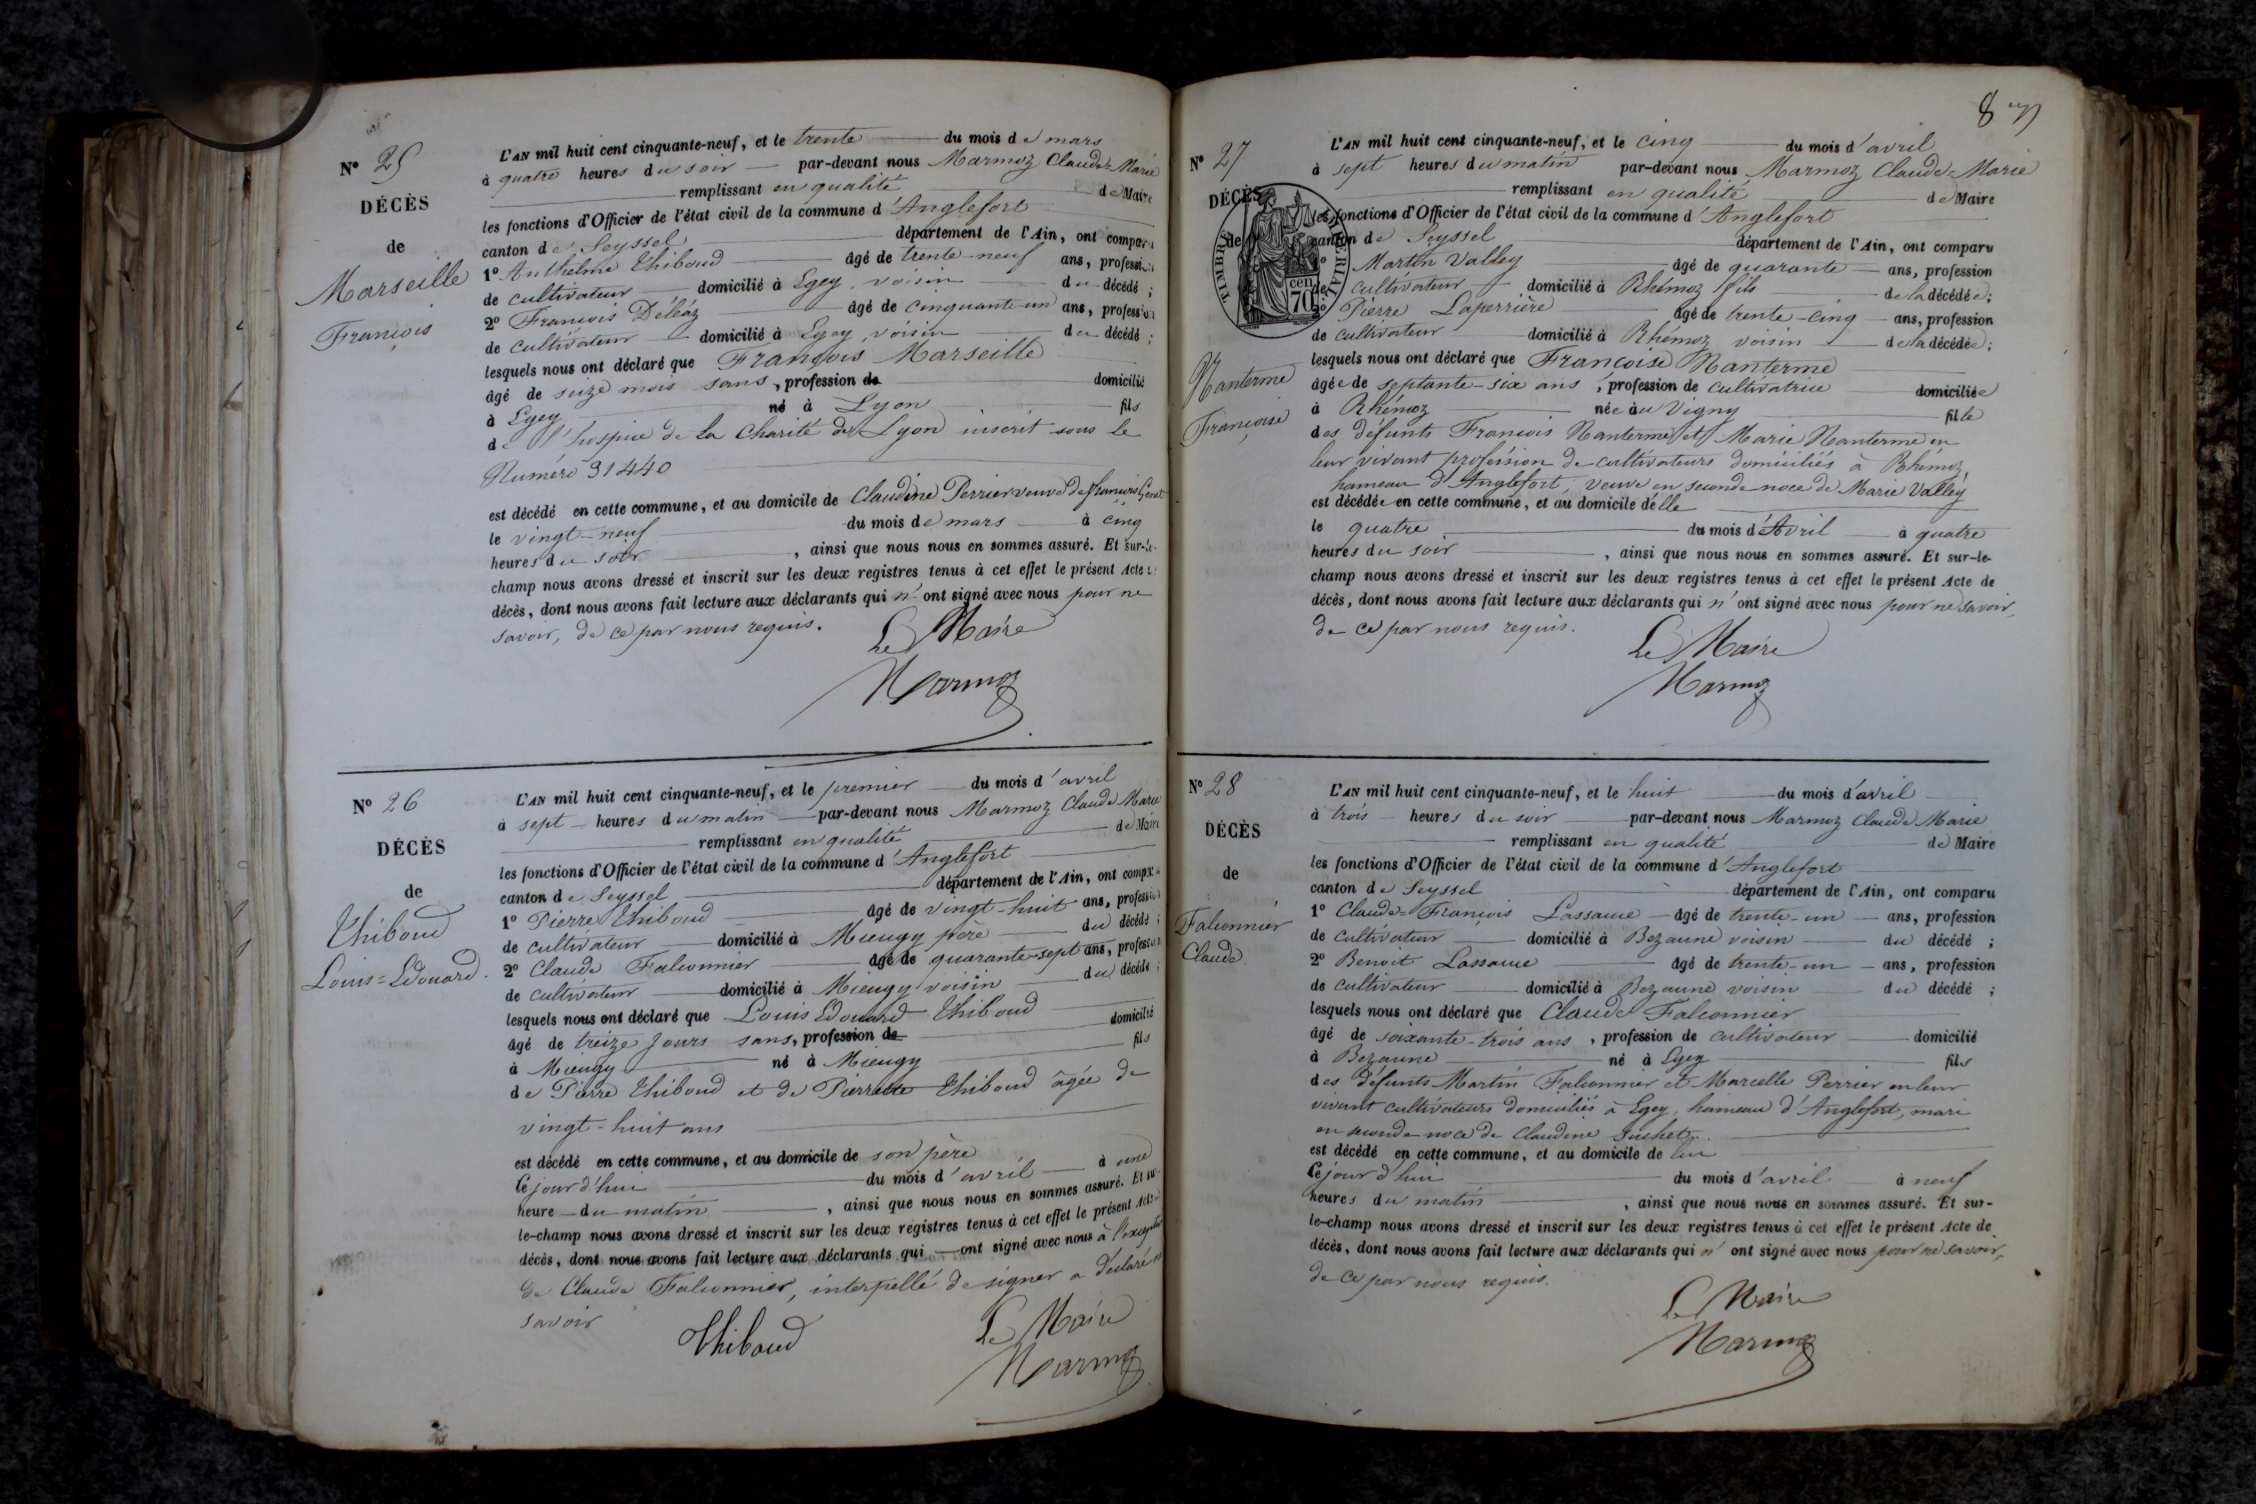 N° 25
DÉCÈS
de
Marseille
François
L'AN mil huit cent cinquante-neuf, et le trente du mois de mars
à quatre heures du soir par-devant nous Marmoz Claude-Marie
remplissant en qualité de Maire
les fonctions d'Officier de l'état civil de la commune d'Anglefort
canton de Seyssel département de l'Ain, ont comparu
1° Anthelme Thiboud âgé de trente-neuf ans, profession
de cultivateur domicilié à Egey, voisin du décédé ;
2° François Déléaz âgé de cinquante-un ans, profession
de cultivateur domicilié à Egey, voisin du décédé ;
lesquels nous ont déclaré que François Marseille
âgé de seize mois sans, profession de domicilié
à Egey né à Lyon fils
de l'hospice de la Charité de Lyon inscrit sous le
Numéro 31440
est décédé en cette commune, et au domicile de Claudine Perrier veuve de François
le vingt-neuf du mois de mars à cinq
heures du soir, ainsi que nous nous en sommes assuré. Et sur-le-
champ nous avons dressé et inscrit sur les deux registres tenus à cet effet le présent Acte de
décès, dont nous avons fait lecture aux déclarants qui n'ont signé avec nous pour ne
savoir, de ce par nous requis.
Le Maire
Marmoz
N° 26
DÉCÈS
de
Thiboud
Louis=Edouard.
L'AN mil huit cent cinquante-neuf, et le premier du mois d'avril
à sept heures du matin par-devant nous Marmoz Claude Marie
remplissant en qualité de Maire
les fonctions d'Officier de l'état civil de la commune d'Anglefort
canton de Seyssel département de l'Ain, ont comparu
1° Pierre Thiboud âgé de vingt-huit ans, profession
de cultivateur domicilié à Mieugy père du décédé ;
2° Claude Falconnier âgé de quarante-sept ans, profession
de cultivateur domicilié à Mieugy voisin du décédé ;
lesquels nous ont déclaré que Louis Edouard Thiboud
âgé de treize jours sans, profession de domicilié
à Mieugy né à Mieugy fils
de Pierre Thiboud et de Pierrette Thiboud âgée de
vingt-huit ans
est décédé en cette commune, et au domicile de son père
Ce jour d'hui du mois d'avril à une
heure du matin, ainsi que nous nous en sommes assuré. Et sur-
le-champ nous avons dressé et inscrit sur les deux registres tenus à cet effet le présent Acte de
décès, dont nous avons fait lecture aux déclarants qui ont signé avec nous à l'exception
de Claude Falconnier, interpellé de signer a déclaré ne
savoir
Thiboud
Le Maire
Marmoz
8
N° 27
DÉCÈS
de
TIMBRE IMPERIAL
cen 70
Nanterme
Françoise
L'AN mil huit cent cinquante-neuf, et le cinq du mois d'avril
à sept heures du matin par-devant nous Marmoz Claude=Marie
remplissant en qualité de Maire
les fonctions d'Officier de l'état civil de la commune d'Anglefort
canton de Seyssel département de l'Ain, ont comparu
1° Martin Valley âgé de quarante ans, profession
de cultivateur domicilié à Rhémoz fils de la décédée ;
2° Pierre Laperrière âgé de trente-cinq ans, profession
de cultivateur domicilié à Rhémoz voisin de la décédée ;
lesquels nous ont déclaré que Françoise Nanterme
âgée de septante-six ans, profession de cultivatrice domiciliée
à Rhémoz née au Vigny fille
des défunts François Nanterme et Marie Nanterme en
leur vivant profession de cultivateurs domiciliés à Rhémoz,
hameau d'Anglefort, veuve en seconde noce de Marie Valley
est décédée en cette commune, et au domicile d'elle
le quatre du mois d'Avril à quatre
heures du soir, ainsi que nous nous en sommes assuré. Et sur-le-
champ nous avons dressé et inscrit sur les deux registres tenus à cet effet le présent Acte de
décès, dont nous avons fait lecture aux déclarants qui n'ont signé avec nous pour ne savoir,
de ce par nous requis.
Le Maire
Marmoz
N° 28
DÉCÈS
de
Falconnier
Claude
L'AN mil huit cent cinquante-neuf, et le huit du mois d'avril
à trois heures du soir par-devant nous Marmoz Claude Marie
remplissant en qualité de Maire
les fonctions d'Officier de l'état civil de la commune d'Anglefort
canton de Seyssel département de l'Ain, ont comparu
1° Claude=François Lassaure âgé de trente-un ans, profession
de cultivateur domicilié à Bezaune voisin du décédé ;
2° Benoit Lassaure âgé de trente-un ans, profession
de cultivateur domicilié à Bezaune voisin du décédé ;
lesquels nous ont déclaré que Claude Falconnier
âgé de soixante-trois ans, profession de cultivateur domicilié
à Bezaune né à Egey fils
des défunts Martin Falconnier et Marcelle Perrier en leur
vivant cultivateurs domiciliés à Egey, hameau d'Anglefort, mari
en seconde noce de Claudine Suchet
est décédé en cette commune, et au domicile de lui
Ce jour d'hui du mois d'avril à neuf
heures du matin, ainsi que nous nous en sommes assuré. Et sur-
le-champ nous avons dressé et inscrit sur les deux registres tenus à cet effet le présent Acte de
décès, dont nous avons fait lecture aux déclarants qui n'ont signé avec nous pour ne savoir,
de ce par nous requis.
Le Maire
Marmoz